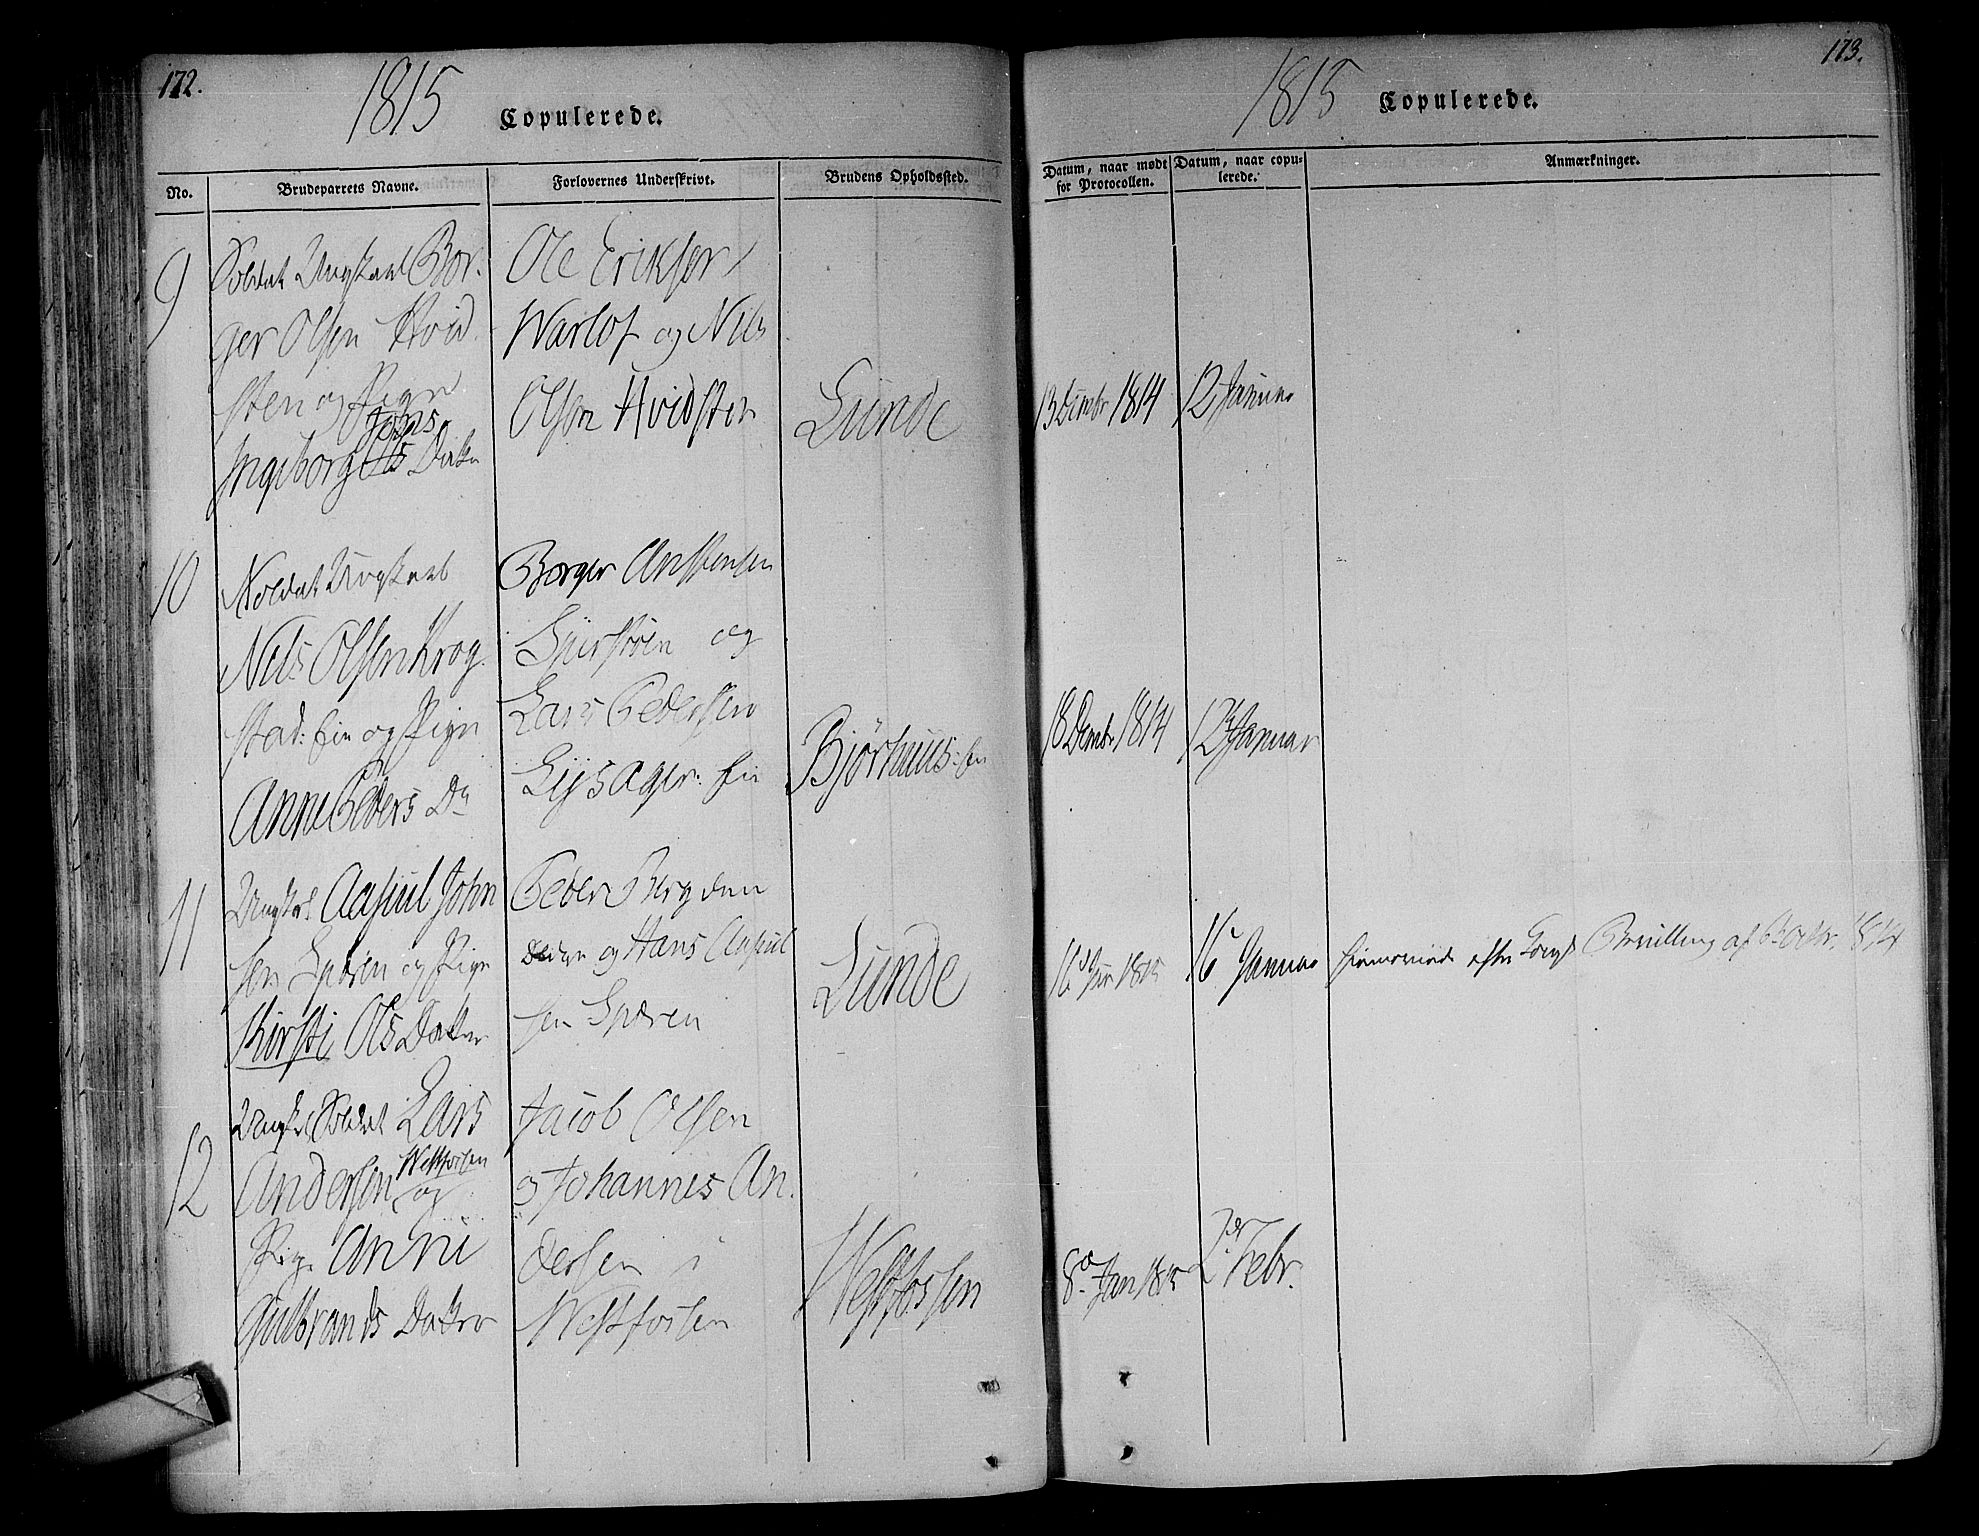 172.
1815
Copulerede.
No.
Brudeparrets Navne.
Forlovernes Underskrivt.
Brudens Opholdssted.
9
Soldat Ungkaal Bor-
ger Olsen Hvid
sten og Pige
Johns
Ingeborg Ols Datter
Ole Eriksen
Warlof og Nils
Olsen Hvidsten
Lunde
10
Soldat Ungkaal
Nils Olsen Krog
stad: Eie og Pige
Anne Peders Dr
Borger Anstensen
og
Lars Pedersen
Lysager: Eie
Bjørhuus: Eie
11
Ungkarl Aassul John
sen Spæren og Pige
Kirsti Ols Datter
Peder Bergsven
og Hans Aassul
sen Spæren
Lunde
12
Ungk. Soldat Lars
Westfossen
Andersen og
Pige Anne
Gulbrands Datter
Jacob Olsen
og Johannes An-
dersen i
Westfossen
Westfossen
173.
1815
Copulerede.
Datum, naar mødt
for Protocollen.
Datum, naar copu-
lerede.
Anmærkninger.
13 Decembr 1814
12 Januar
18 Decembr 1814
12 Januar
16 Jan 1815
16 Januar
hiemmeviede efter Kongl Bevilling af 6 Octbr. 1814
8de Jan 1815
2den Febr.